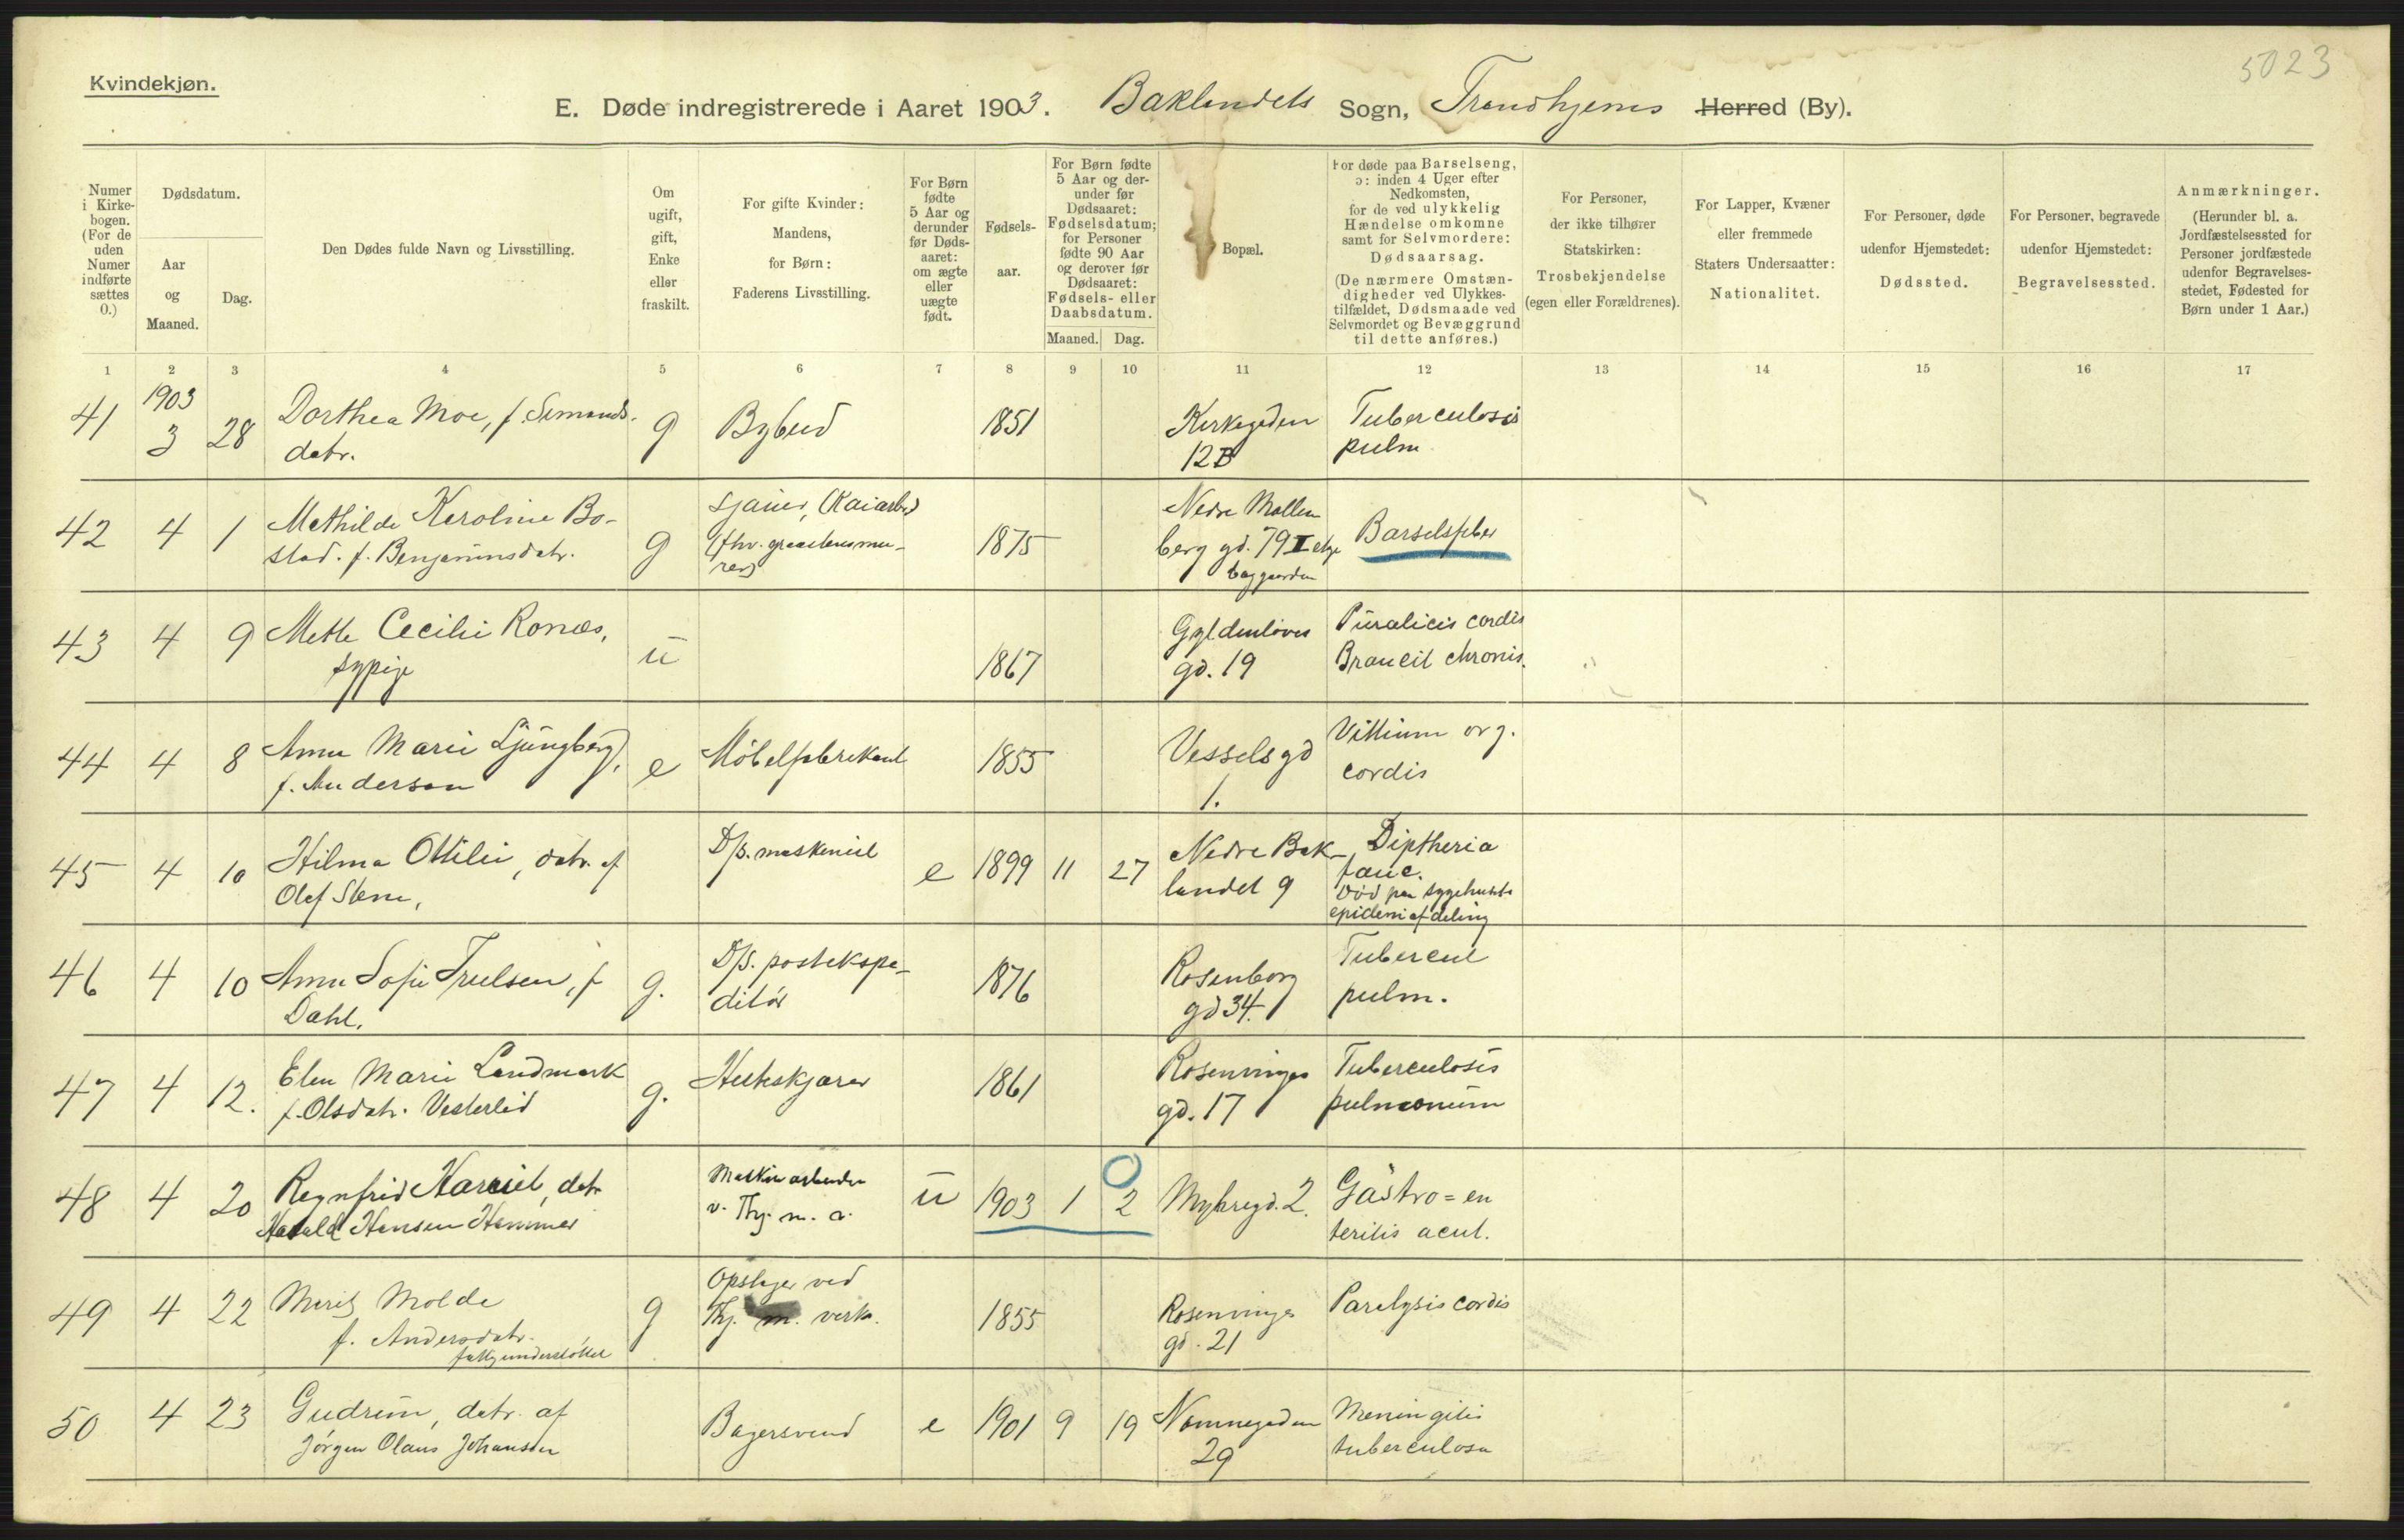 5023
Kvindekjøn.
E. Døde indregistrerede i Aaret 1903. Baklandets Sogn, Trondhjems Herred (By).
Numer i Kirkebogen. (For de uden Numer indførte sættes 0.)
Dødsdatum.
Aar og Maaned.
Dag.
Den Dødes fulde Navn og Livsstilling.
Om ugift, gift, Enke eller fraskilt.
For gifte Kvinder: Mandens, for Børn: Faderens Livsstilling.
For Børn fødte 5 Aar og derunder før Dødsaaret: om ægte eller uægte født.
Fødselsaar.
For Børn fødte 5 Aar og derunder før Dødsaaret: Fødselsdatum; for Personer fødte 90 Aar og derover før Dødsaaret: Fødsels- eller Daabsdatum.
Maaned. Dag.
Bopæl.
For døde paa Barselseng, ɔ: inden 4 Uger efter Nedkomsten, for de ved ulykkelig Hændelse omkomne samt for Selvmordere: Dødsaarsag. (De nærmere Omstændigheder ved Ulykkestilfældet, Dødsmaade ved Selvmordet og Bevæggrund til dette anføres.)
For Personer, der ikke tilhører Statskirken: Trosbekjendelse (egen eller Forældrenes).
For Lapper, Kvæner eller fremmede Staters Undersaatter: Nationalitet.
For Personer, døde udenfor Hjemstedet: Dødssted.
For Personer, begravede udenfor Hjemstedet: Begravelsessted.
Anmærkninger. (Herunder bl. a. Jordfæstelsessted for Personer jordfæstede udenfor Begravelsesstedet, Fødested for Børn under 1 Aar.)
1 2 3 4 5 6 7 8 9 10 11 12 13 14 15 16 17
1903
41 3 28 Dorthea Moe, f. Simonds- g Bybud 1851 Kirkegaden Tuberculosis
datr. 12B pulm
42 4 1 Mathilde Karoline Bo- g Sjauer, (Kaiarb.) 1875 Nedre Møllen Barselsfeber
stad. f. Benjaminsdatr. (fhv. graastensmu- berg gd. 79 I etg
rer) baggaarden
43 4 9 Mette Cecilie Ronæs, u 1867 Gyldenløves cordis
sypige gd. 19 chronis.
44 4 8 Anna Marie Ljungberg, e Møbelfabrikant 1855 Vessels gd Vittium org.
f. Anderson 1. cordis
45 4 10 Hilma Ottilie, datr. af D/s. maskinist e 1899 11 27 Nedre Bak- Diptheria
Olaf Stene, landet 9 fauc.
Død paa sygehusets
epidemiafdeling
46 4 10 Anna Sofie Trulsen, f g. D/s. postekspe- 1876 Rosenborg Tubercul
Dahl. ditør gd 34. pulm.
47 4 12. Elen Marie Landmark g. 1861 Rosenvinges Tuberculosis
f. Olsdatr. Vesterlid gd. 17 pulmonum
48 4 20 Ragnfrid datr Maskinarbeider u 1903 1 2 Mybregd. 2. Gastro=en
Harald Hansen Hammer v. Thj. m. v. teritis acut.
49 4 22 Marit Molde g Opsyger ved 1855 Rosenvinges Paralysis cordis
f. Andersdatr. Thj. m. verks. gd. 21
fattigunderstøttet
50 4 23 Gudrun, datr. af Bagersvend e 1901 9 19 Nonnegaden Meningitis
Jørgen Olaus Johansen 29 tuberculosa